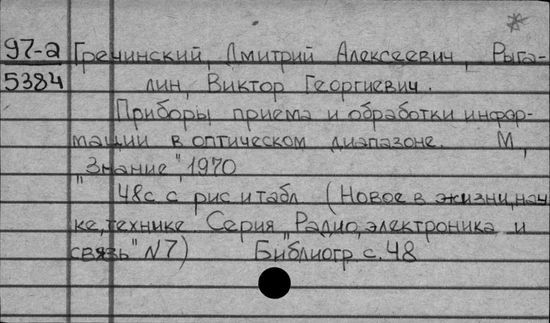 97-а Гречинский, Дмитрий Алексеевич, Рыга-
5384 лин, Виктор Георгиевич.
Приборы приема и обработки инфор-
мации в оптическом диапазоне. М,
"Знание", 1970
48с с рис и табл (Новое в жизни, нау
ке, технике Серия "Радио, электроника и
связь" N7) Библиогр с. 48